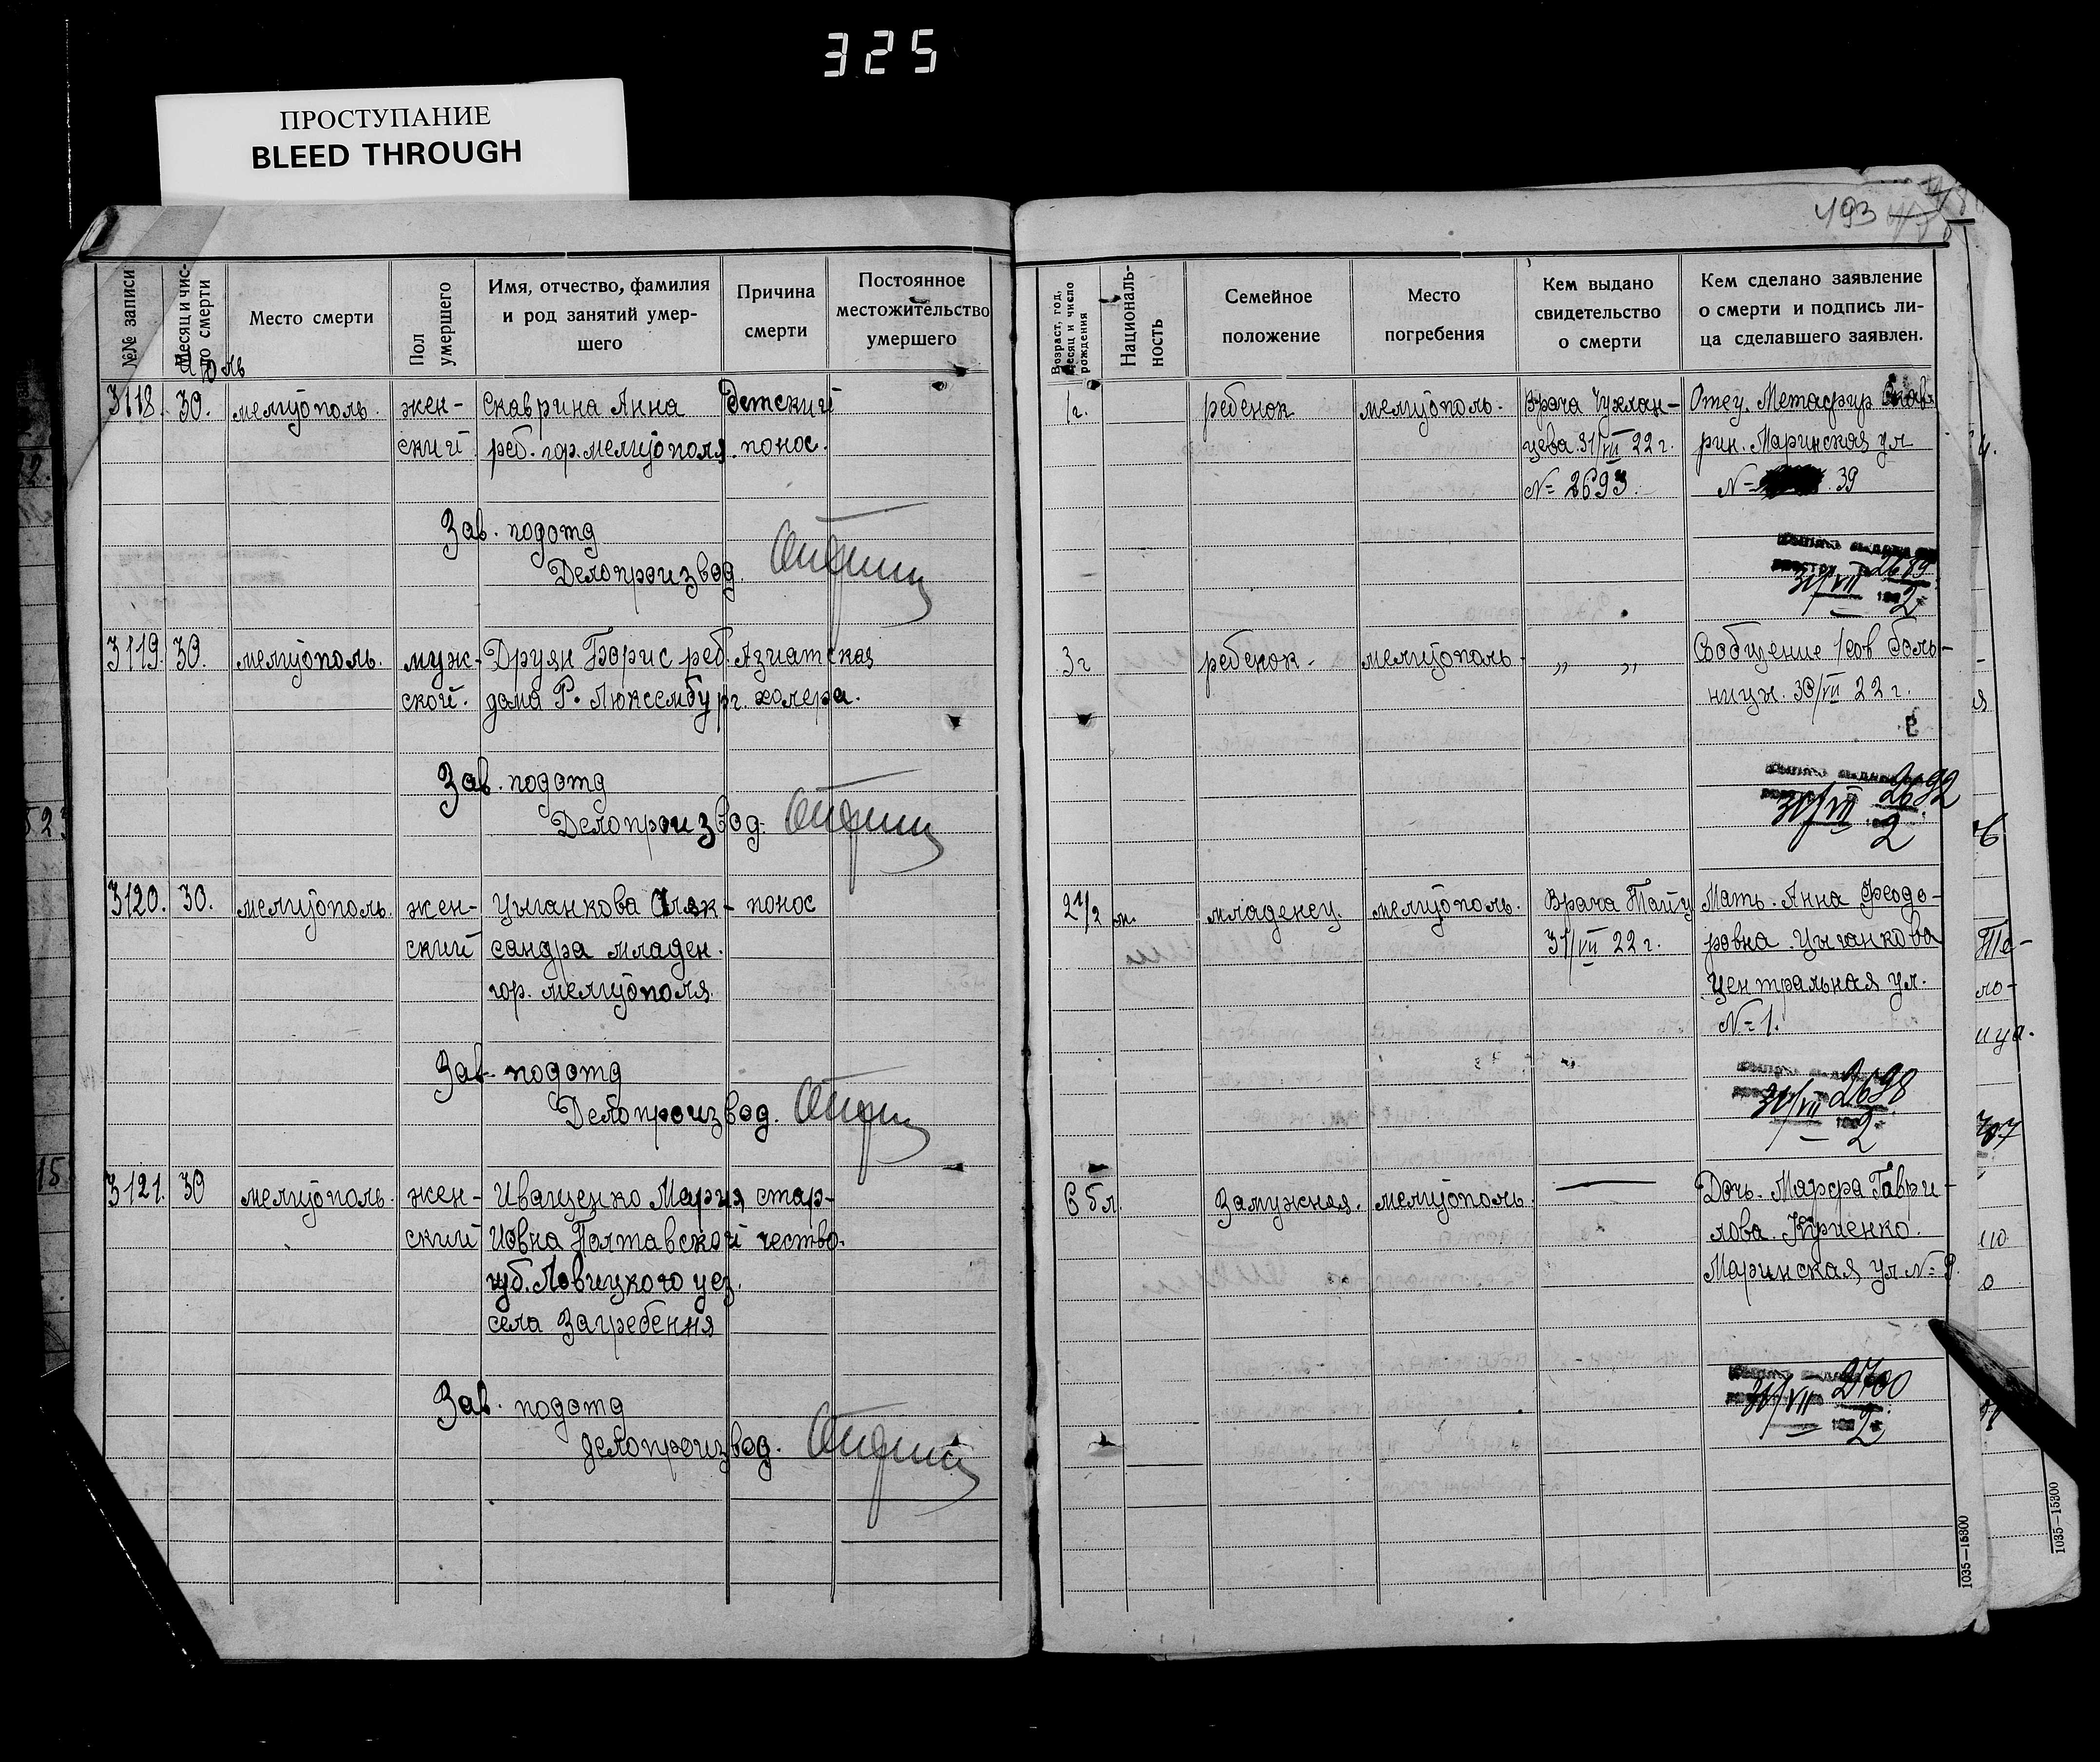 325
ПРОСТУПАНИЕ
BLEED THROUGH
493
№№ записи
Месяц и чис-
ло смерти
Июль
Место смерти
Пол
умершего
Имя, отчество, фамилия
и род занятий умер-
шего
Причина
смерти
Постоянное
местожительство
умершего
Возраст, год,
месяц и число
рождения
Националь-
ность
Семейное
положение
Место
погребения
Кем выдано
свидетельство
о смерти
Кем сделано заявление
о смерти и подпись ли-
ца сделавшего заявлен.
3118. 30. мелитополь. жен- Скаврина Анна детский 1г. ребенок мелитополь. Врача Чухлан- Отец. Скав-
ский реб. гор. мелитополя. понос. цева 31/VII 22 г. рин. Маринская ул
№ 2693. № 39
Зав. подотд
Делопроизвод.
31/VII 2689
2
3119. 30. мелитополь. муж- Друян Борис реб. Азиатская 3г ребенок. мелитополь. „ „ Сообщение 1 сов боль-
ской. дома Р. Люксембург. холера. ницы. 30/VII 22 г.
Зав. подотд
Делопроизвод.
31/VII 2692
2
3120. 30. мелитополь. жен- Цыганкова Алек- понос 2 1/2 м. младенец. мелитополь. Врача Тайц Мать. Анна Феодо-
ский сандра младен. 31/VII 22 г. ровна. Цыганкова
гор. мелитополя. Центральная ул.
№ 1.
Зав. подотд
Делопроизвод.
31/VII 2698
2
3121. 30 мелитополь. жен- Иващенко Мария стар- 65л. Замужняя. мелитополь. — Дочь. Марфа Гаври-
ский Иовна Полтавской чество. лова. Куриенко.
губ. уез. Маринская ул №
села Загребення
Зав. подотд
делопроизвод.
31/VII 2700
2
1035—15300
1035—15300